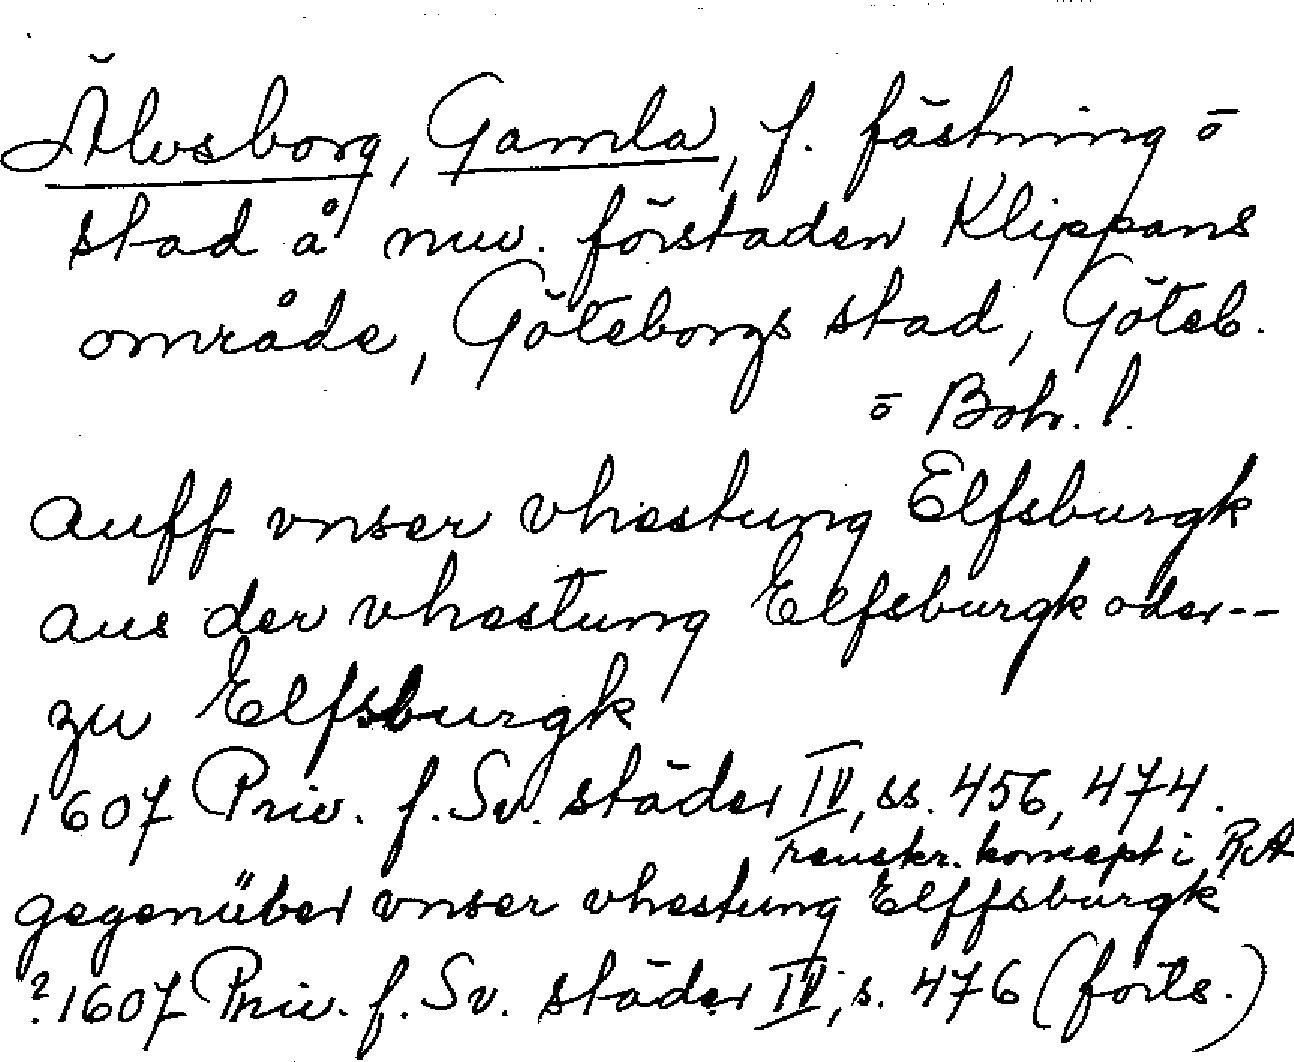 Älvsborg, Gamla, f. fästning o
stad å nuv. förstaden Klippans
område, Göteborgs stad, Göteb.
o Boh. l.
auff vnser vhestung Elfsburgk
aus der vhestung Elfsburgk oder--
zu Elfsburgk
1607 Priv. f. Sv. städer IV, ss. 456, 474.
renskr. koncept i RA
gegenüber vnser vhestung Elffsburgk
? 1607 Priv. f. Sv. städer IV, s. 476 (forts.)